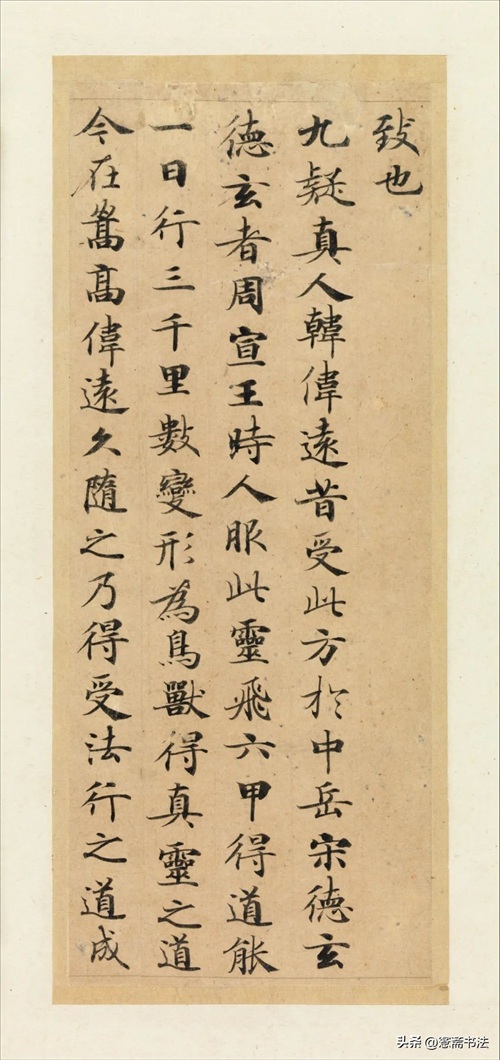 致也
九疑真人韓偉遠昔受此方於中岳宋德玄
德玄者周宣王時人服此靈飛六甲得道能
一日行三千里數變形為鳥獸得真靈之道
今在嵩高偉遠久隨之乃得受法行之道成
头条@憲斋书法